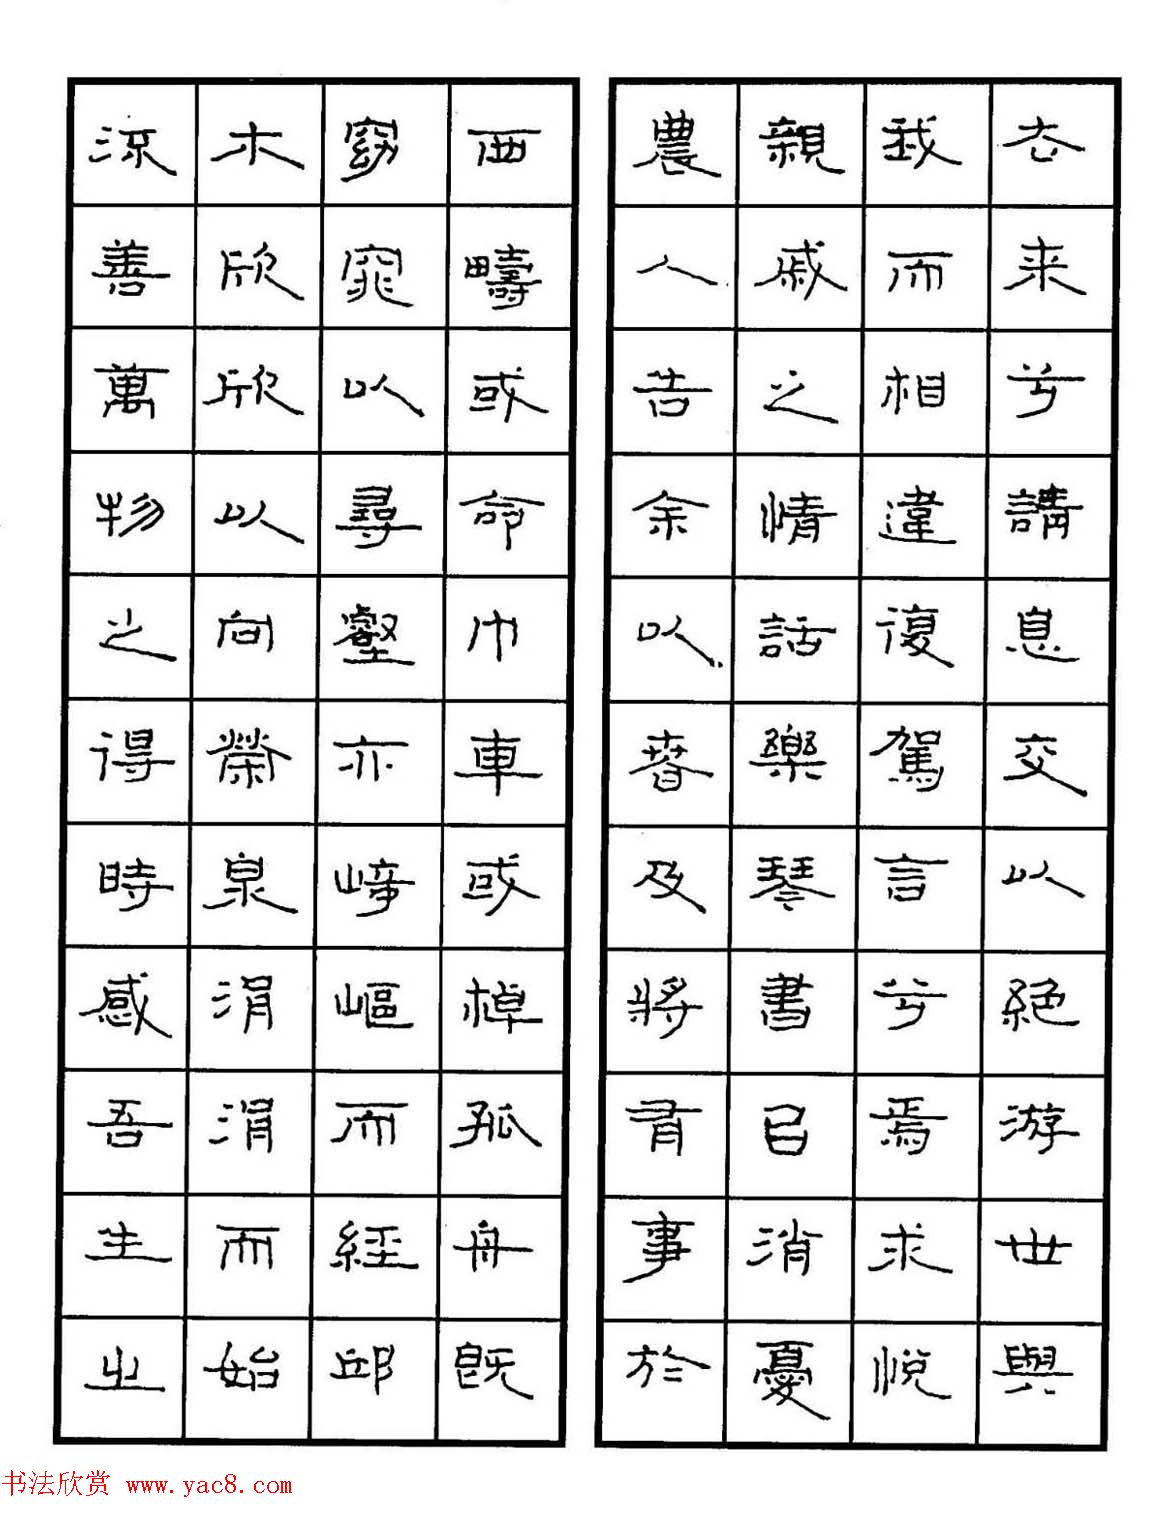 去来兮請息交以絕游世與
我而相違復駕言兮焉求悅
親戚之情話樂琴書㠯消憂
農人告余以春及將有事於
西疇或命巾車或棹孤舟既
窈窕以尋壑亦崎嶇而經邱
木欣欣以向榮泉涓涓而始
流善萬物之得時感吾生之
书法欣赏 www.yac8.com